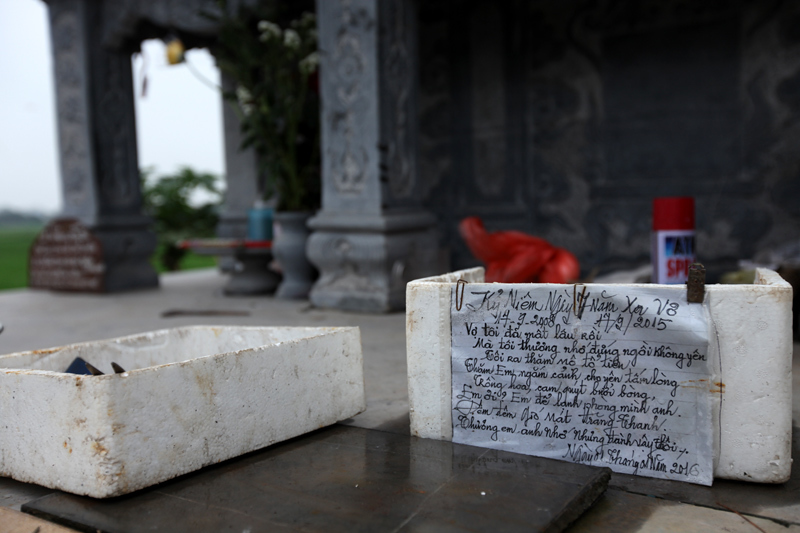 Kỷ Niệm Ngày Năm Xa Vợ
14-9-2008 17/9/2015
Vợ tôi đã mất lâu rồi
Mà tôi thương nhớ đứng ngồi không yên
Tôi ra thăm mộ tổ tiên
Thăm Em, ngắm cảnh, cho yên tấm lòng
Trồng hoa, cam, quýt bưởi bòng
Em ơi? Em để lạnh phòng mình anh.
Đêm đêm gió mát trăng thanh
Thương em anh nhớ những
Năm 2016
ATM
SPE